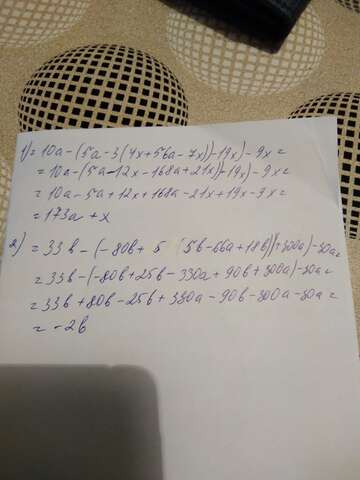 1) = 10a - (5a - 3(4x + 56a - 7x)) - 19x) - 9x =
= 10a - (5a - 12x - 168a + 21x)) - 19x) - 9x =
= 10a - 5a + 12x + 168a - 21x + 19x - 9x =
= 173a + x
2) = 33b - (-80b + 5 (5b - 66a + 18b)) + 300a) - 30a =
= 33b - (-80b + 25b - 330a + 90b + 300a) - 30a =
= 33b + 80b - 25b + 330a - 90b - 300a - 30a =
= -2b